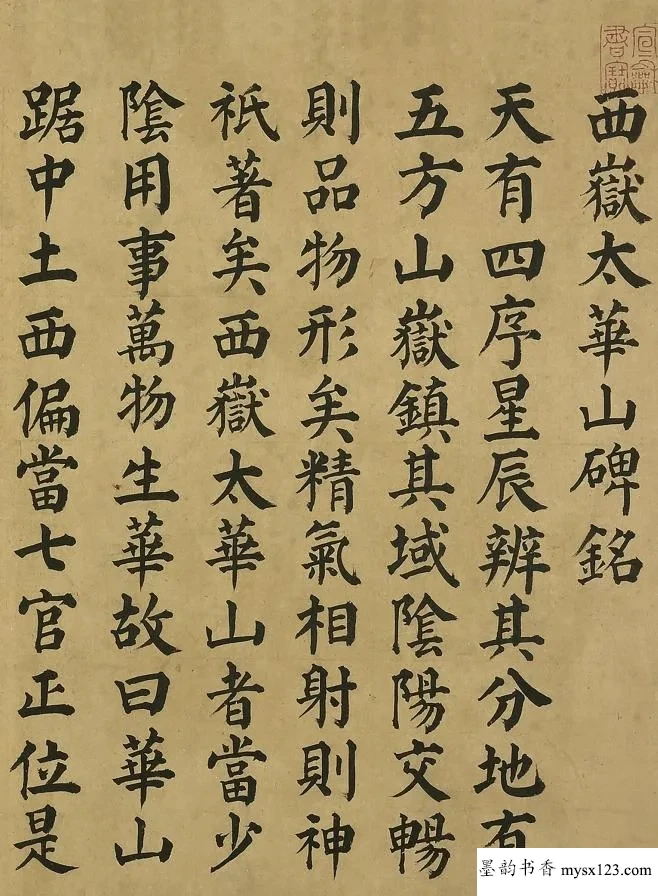 西嶽太華山碑銘
天有四序星辰辨其分地有
五方山嶽鎮其域陰陽交暢
則品物形矣精氣相射則神
祇著矣西嶽太華山者當少
陰用事萬物生華故曰華山
踞中土西偏當七宮正位是
墨韵书香 mysx123.com